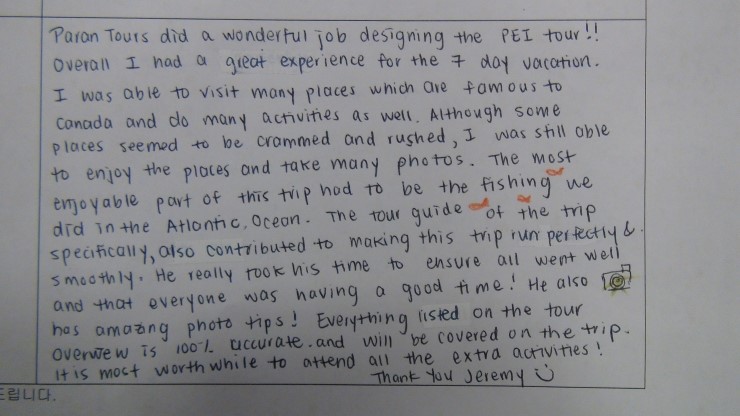 Paran Tours did a wonderful job designing the PEI tour!!
Overall I had a great experience for the 7 day vacation.
I was able to visit many places which are famous to
Canada and do many activities as well. Although some
places seemed to be crammed and rushed, I was still able
to enjoy the places and take many photos. The most
enjoyable part of this trip had to be the fishing we
did in the Atlantic, Ocean. The tour guide of the trip
specifically, also contributed to making this trip run perfectly &
smoothly. He really took his time to ensure all went well
and that everyone was having a good time! He also
has amazing photo tips! Everything listed on the tour
overview is 100% accurate. and will be covered on the trip.
It is most worth while to attend all the extra activities!
Thank You Jeremy
드립니다.